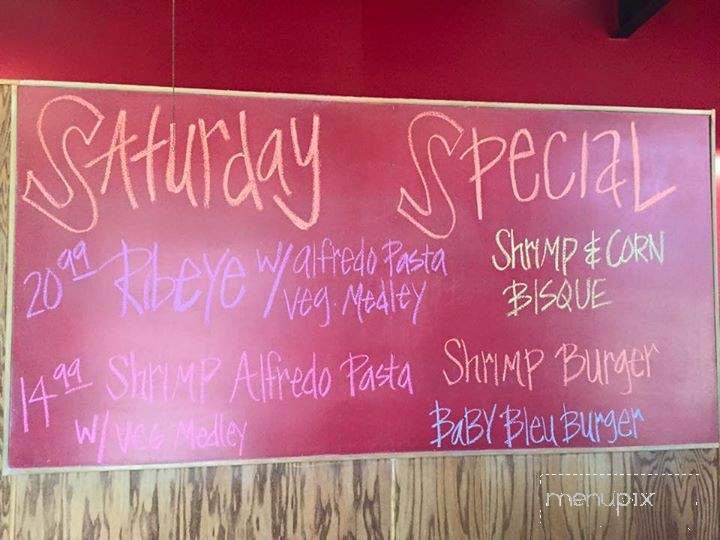 Saturday Special
20.99 Ribeye w/ alfredo Pasta
Veg. Medley
14.99 Shrimp Alfredo Pasta
w/ veg Medley
Shrimp & CORN
BISQUE
Shrimp Burger
BaBY Bleu Burger
menupix